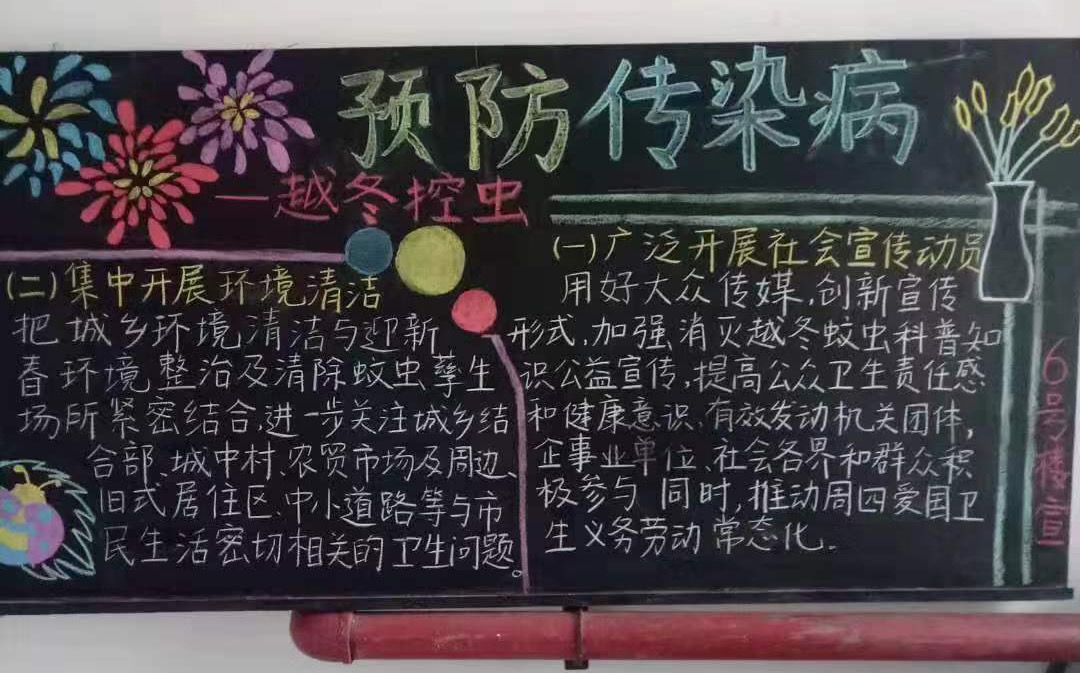 预防传染病
—越冬控虫
(一)广泛开展社会宣传动员
用好大众传媒,创新宣传
形式,加强消灭越冬蚊虫科普知
识公益宣传,提高公众卫生责任感
和健康意识、有效发动机关团体,
企事业单位、社会各界和群众积
极参与 同时,推动周四爱国卫
生义务劳动常态化.
(二)集中开展环境清洁
把城乡环境清洁与迎新
春环境整治及清除蚊虫孳生
场所紧密结合,进一步关注城乡结
合部、城中村、农贸市场及周边、
旧式居住区、中小道路等与市
民生活密切相关的卫生问题。
6号楼宣